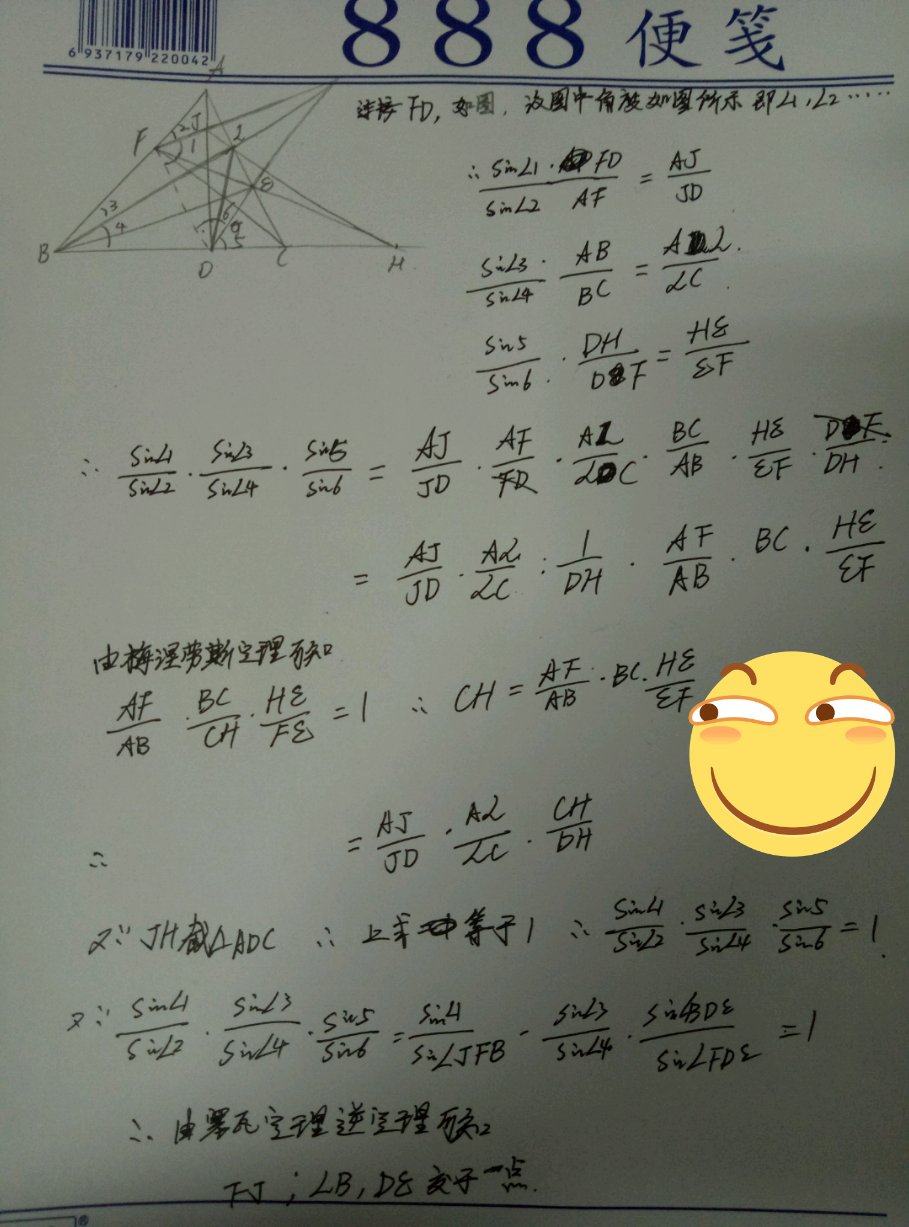 6 937179 220042
888 便笺
A
F
2
J
1
L
3
4
B
ε
6
5
D
C
H
连接 FD, 如图, 设图中角度如图所示 即∠1, ∠2……
∴ sin∠1/sin∠2 · FD/AF = AJ/JD
sin∠3/sin∠4 · AB/BC = AL/LC.
sin5/sin6 · DH/DF = HE/EF
∴ sin∠1/sin∠2 · sin∠3/sin∠4 · sin5/sin6 = AJ/JD · AF/FD · AL/LC · BC/AB · HE/EF · DF/DH
= AJ/JD · AL/LC · 1/DH · AF/AB · BC · HE/EF
由梅涅劳斯定理可知
AF/AB · BC/CH · HE/FE = 1 ∴ CH = AF/AB · BC · HE/EF
∴ = AJ/JD · AL/LC · CH/DH
又∵ JH截△ADC ∴ 上式等于1 ∴ sin∠1/sin∠2 · sin∠3/sin∠4 · sin5/sin6 = 1
又∵ sin∠1/sin∠2 · sin∠3/sin∠4 · sin5/sin6 = sin∠1/sin∠JFB · sin∠3/sin∠4 · sin∠BDE/sin∠FDE = 1
∴ 由塞瓦定理逆定理可知
FJ, LB, DE 交于一点.